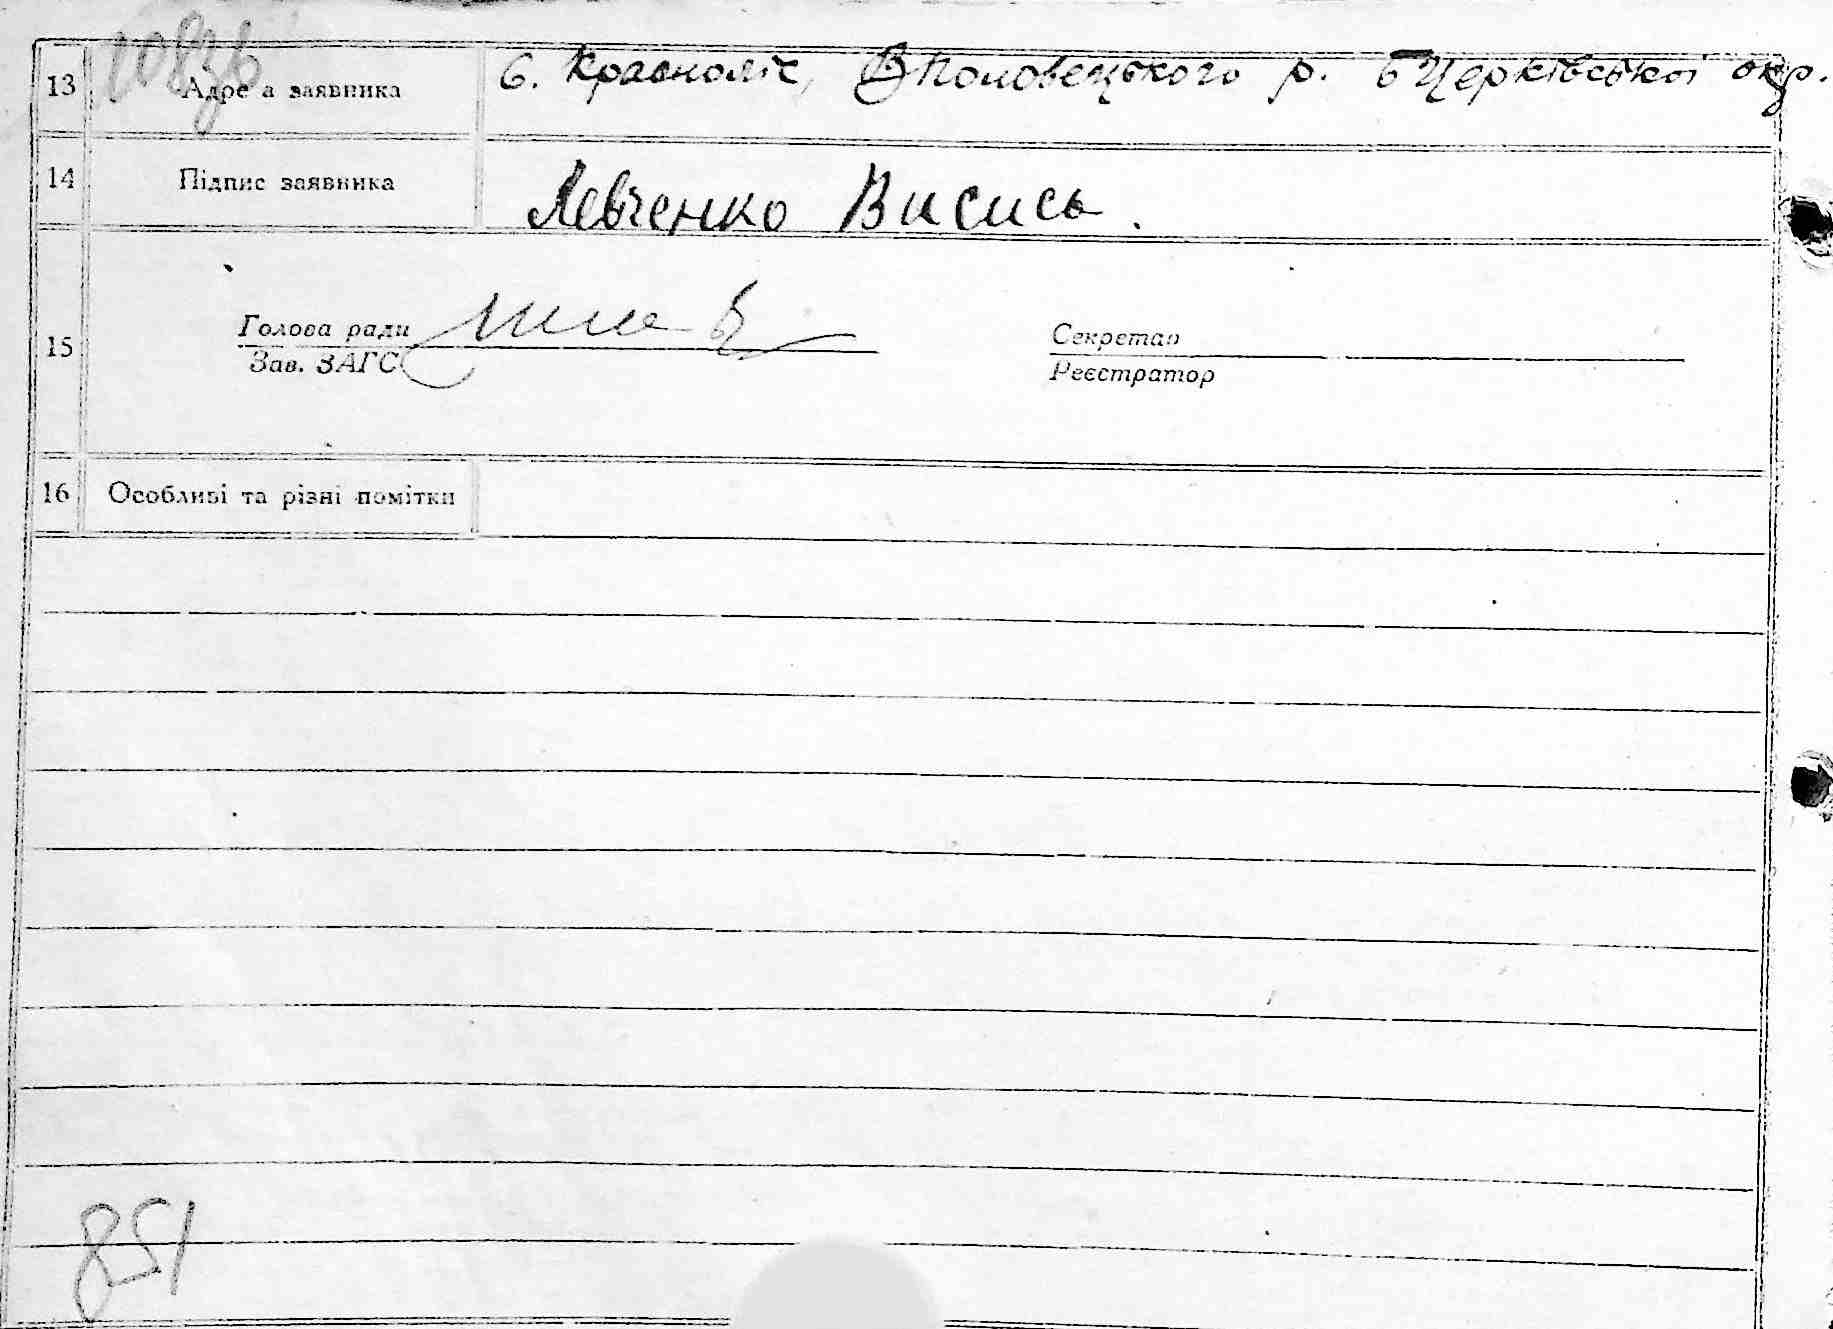 13 Адреса заявника с. Красноліс, В Половецького р. БЦерківської окр.
14 Підпис заявника Левченко Висись.
15 Голова ради Секретар
Зав. ЗАГС Реєстратор
16 Особливі та різні помітки